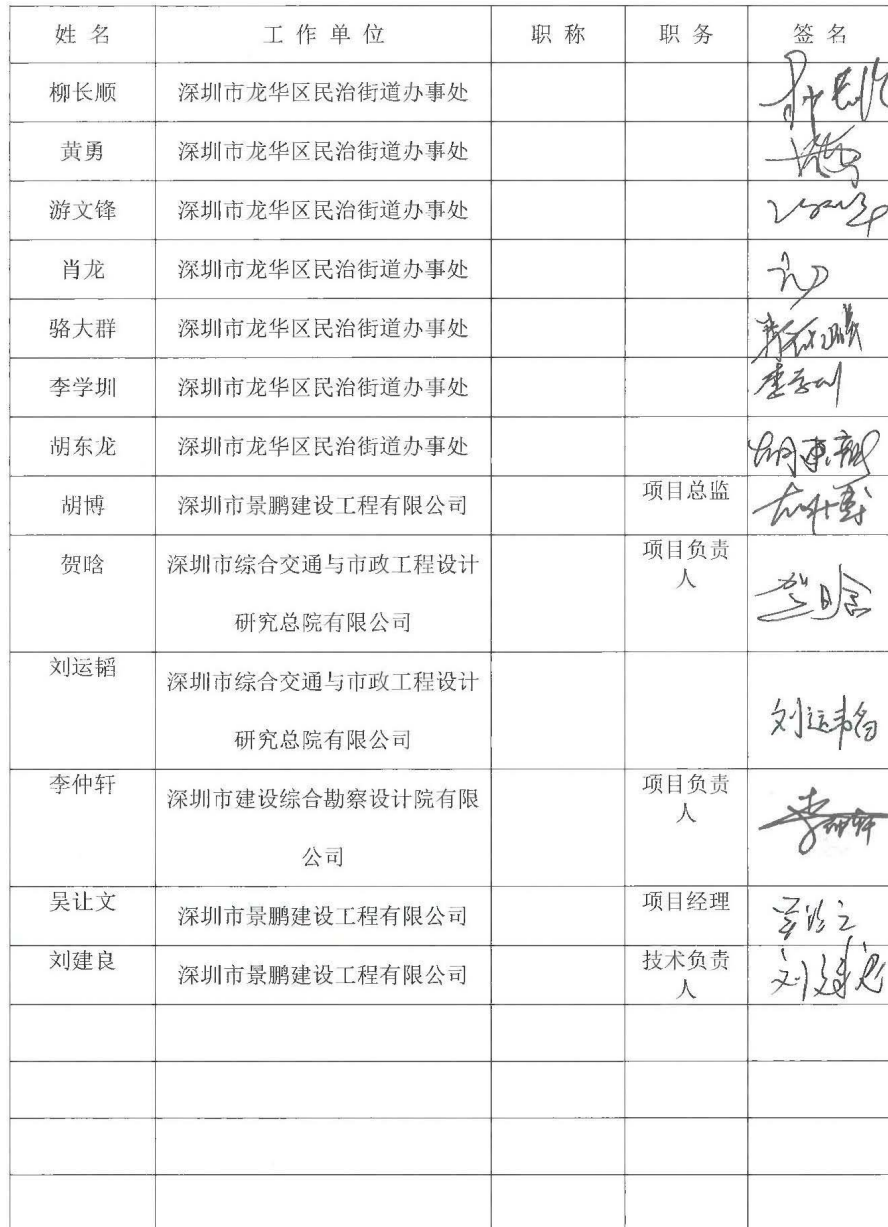 姓 名 工 作 单 位 职 称 职 务 签 名
柳长顺 深圳市龙华区民治街道办事处
黄勇 深圳市龙华区民治街道办事处
游文锋 深圳市龙华区民治街道办事处
肖龙 深圳市龙华区民治街道办事处
骆大群 深圳市龙华区民治街道办事处
李学圳 深圳市龙华区民治街道办事处 李学圳
胡东龙 深圳市龙华区民治街道办事处
胡博 深圳市景鹏建设工程有限公司 项目总监
贺晗 深圳市综合交通与市政工程设计 项目负责
人 贺晗
研究总院有限公司
刘运韬
深圳市综合交通与市政工程设计
刘运韬
研究总院有限公司
李仲轩 项目负责
深圳市建设综合勘察设计院有限 人 李仲轩
公司
吴让文 深圳市景鹏建设工程有限公司 项目经理
刘建良 深圳市景鹏建设工程有限公司 技术负责
人 刘建良